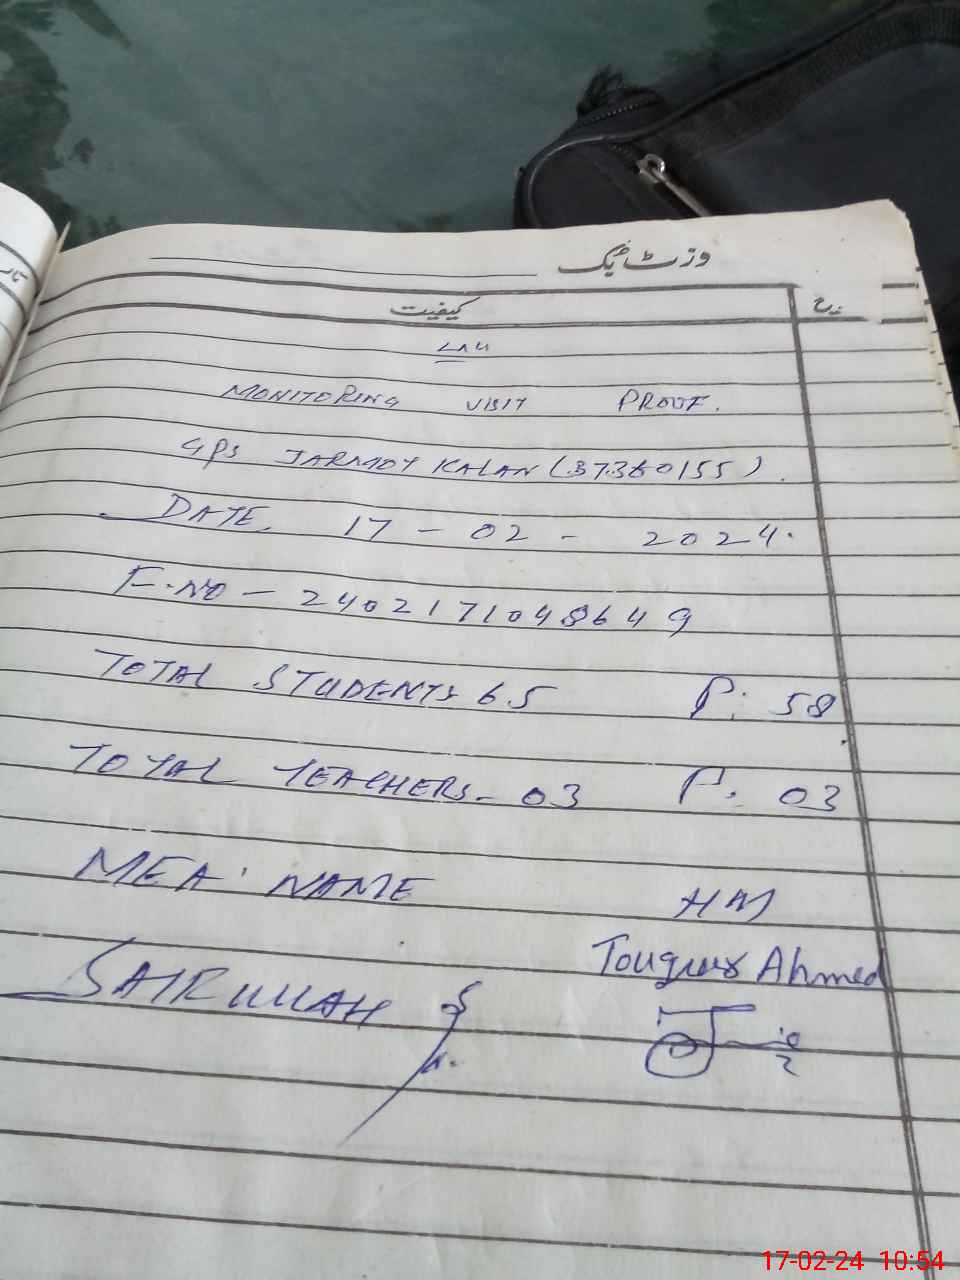 وزٹ بک
کیفیت
MONITORING VISIT PROOF.
GPS JARMOT KALAN (37360155).
DATE. 17 - 02 - 2024.
F.NO - 2402171048649
TOTAL STUDENTS 65 P: 58
TOTAL TEACHERS - 03 P. 03
MEA. NAME HM
Ahmed
17-02-24 10:54